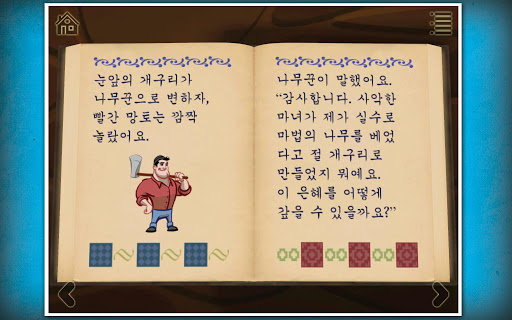 눈앞의 개구리가
나무꾼으로 변하자,
빨간 망토는 깜짝
놀랐어요.
나무꾼이 말했어요.
“감사합니다. 사악한
마녀가 제가 실수로
마법의 나무를 베었
다고 절 개구리로
만들었지 뭐예요.
이 은혜를 어떻게
갚을 수 있을까요?”